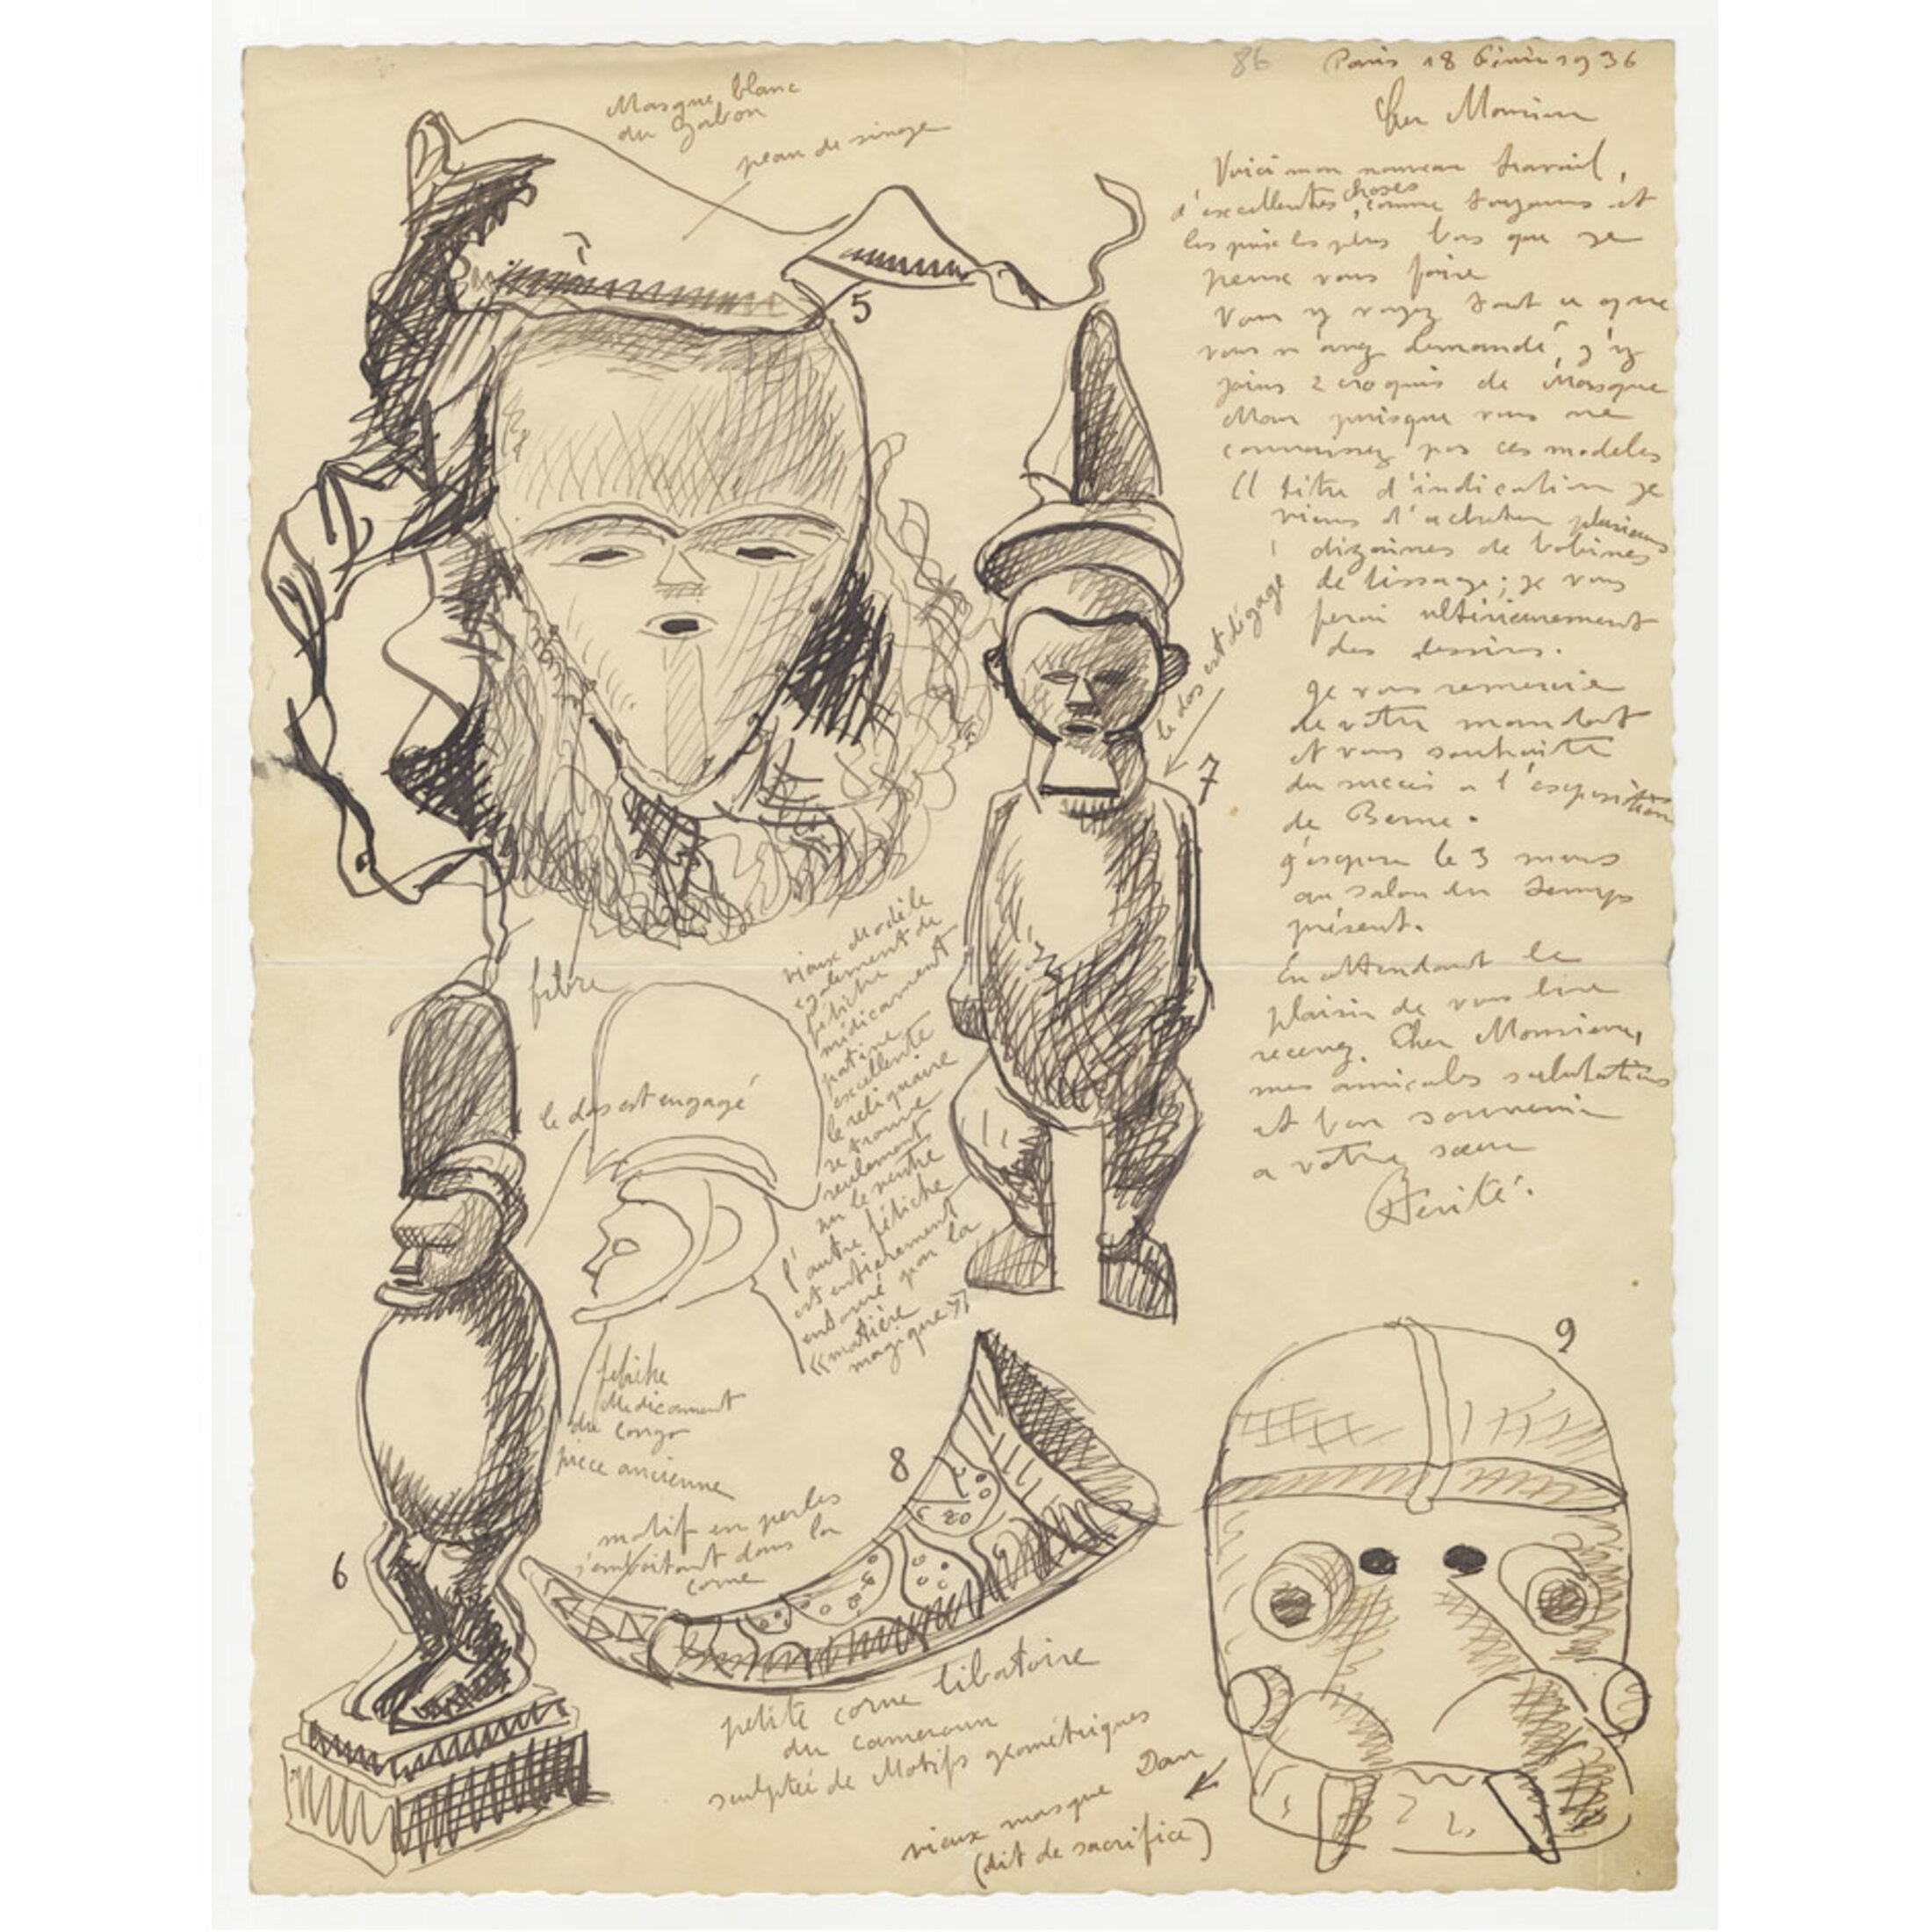 86
Paris 18 Février 1936
Cher Monsieur
Voici mon nouveau travail,
d'excellentes choses, comme toujours et
les prix les plus bas que je
peux vous faire
Vous y voyez tout ce que
vous m'avez demandé, j'y
joins 2 croquis de Masque
puisque vous ne
connaissez pas ces modeles
A titre d'indication je
viens d'acheter plusieurs
dizaines de bobines
de tissage; je vous
ferai ultérieurement
des dessins.
Je vous remercie
de votre mandat
et vous souhaite
du succès a l'exposition
de Berne.
J'expose le 3 mars
au salon du temps
présent.
En attendant le
plaisir de vous lire
recevez, Cher Monsieur,
mes amicales salutations
et bon souvenir
a votre sœur
Vérité.
Masque blanc
du Gabon
peau de singe
5
fibre
le dos est dégagé
7
vieux modèle
également de
fétiche
médicament
patine
excellente
le reliquaire
se trouve
seulement
sur le ventre
l'autre fétiche
est entièrement
entouré par la
«matière
magique»
le dos est engagé
fétiche
Médicament
du Congo
pièce ancienne
6
motif en perles
s'emboitant dans la
corne
8
petite corne libatoire
du Cameroun
sculptée de Motifs géométriques
9
vieux masque Dan
(dit de sacrifice)